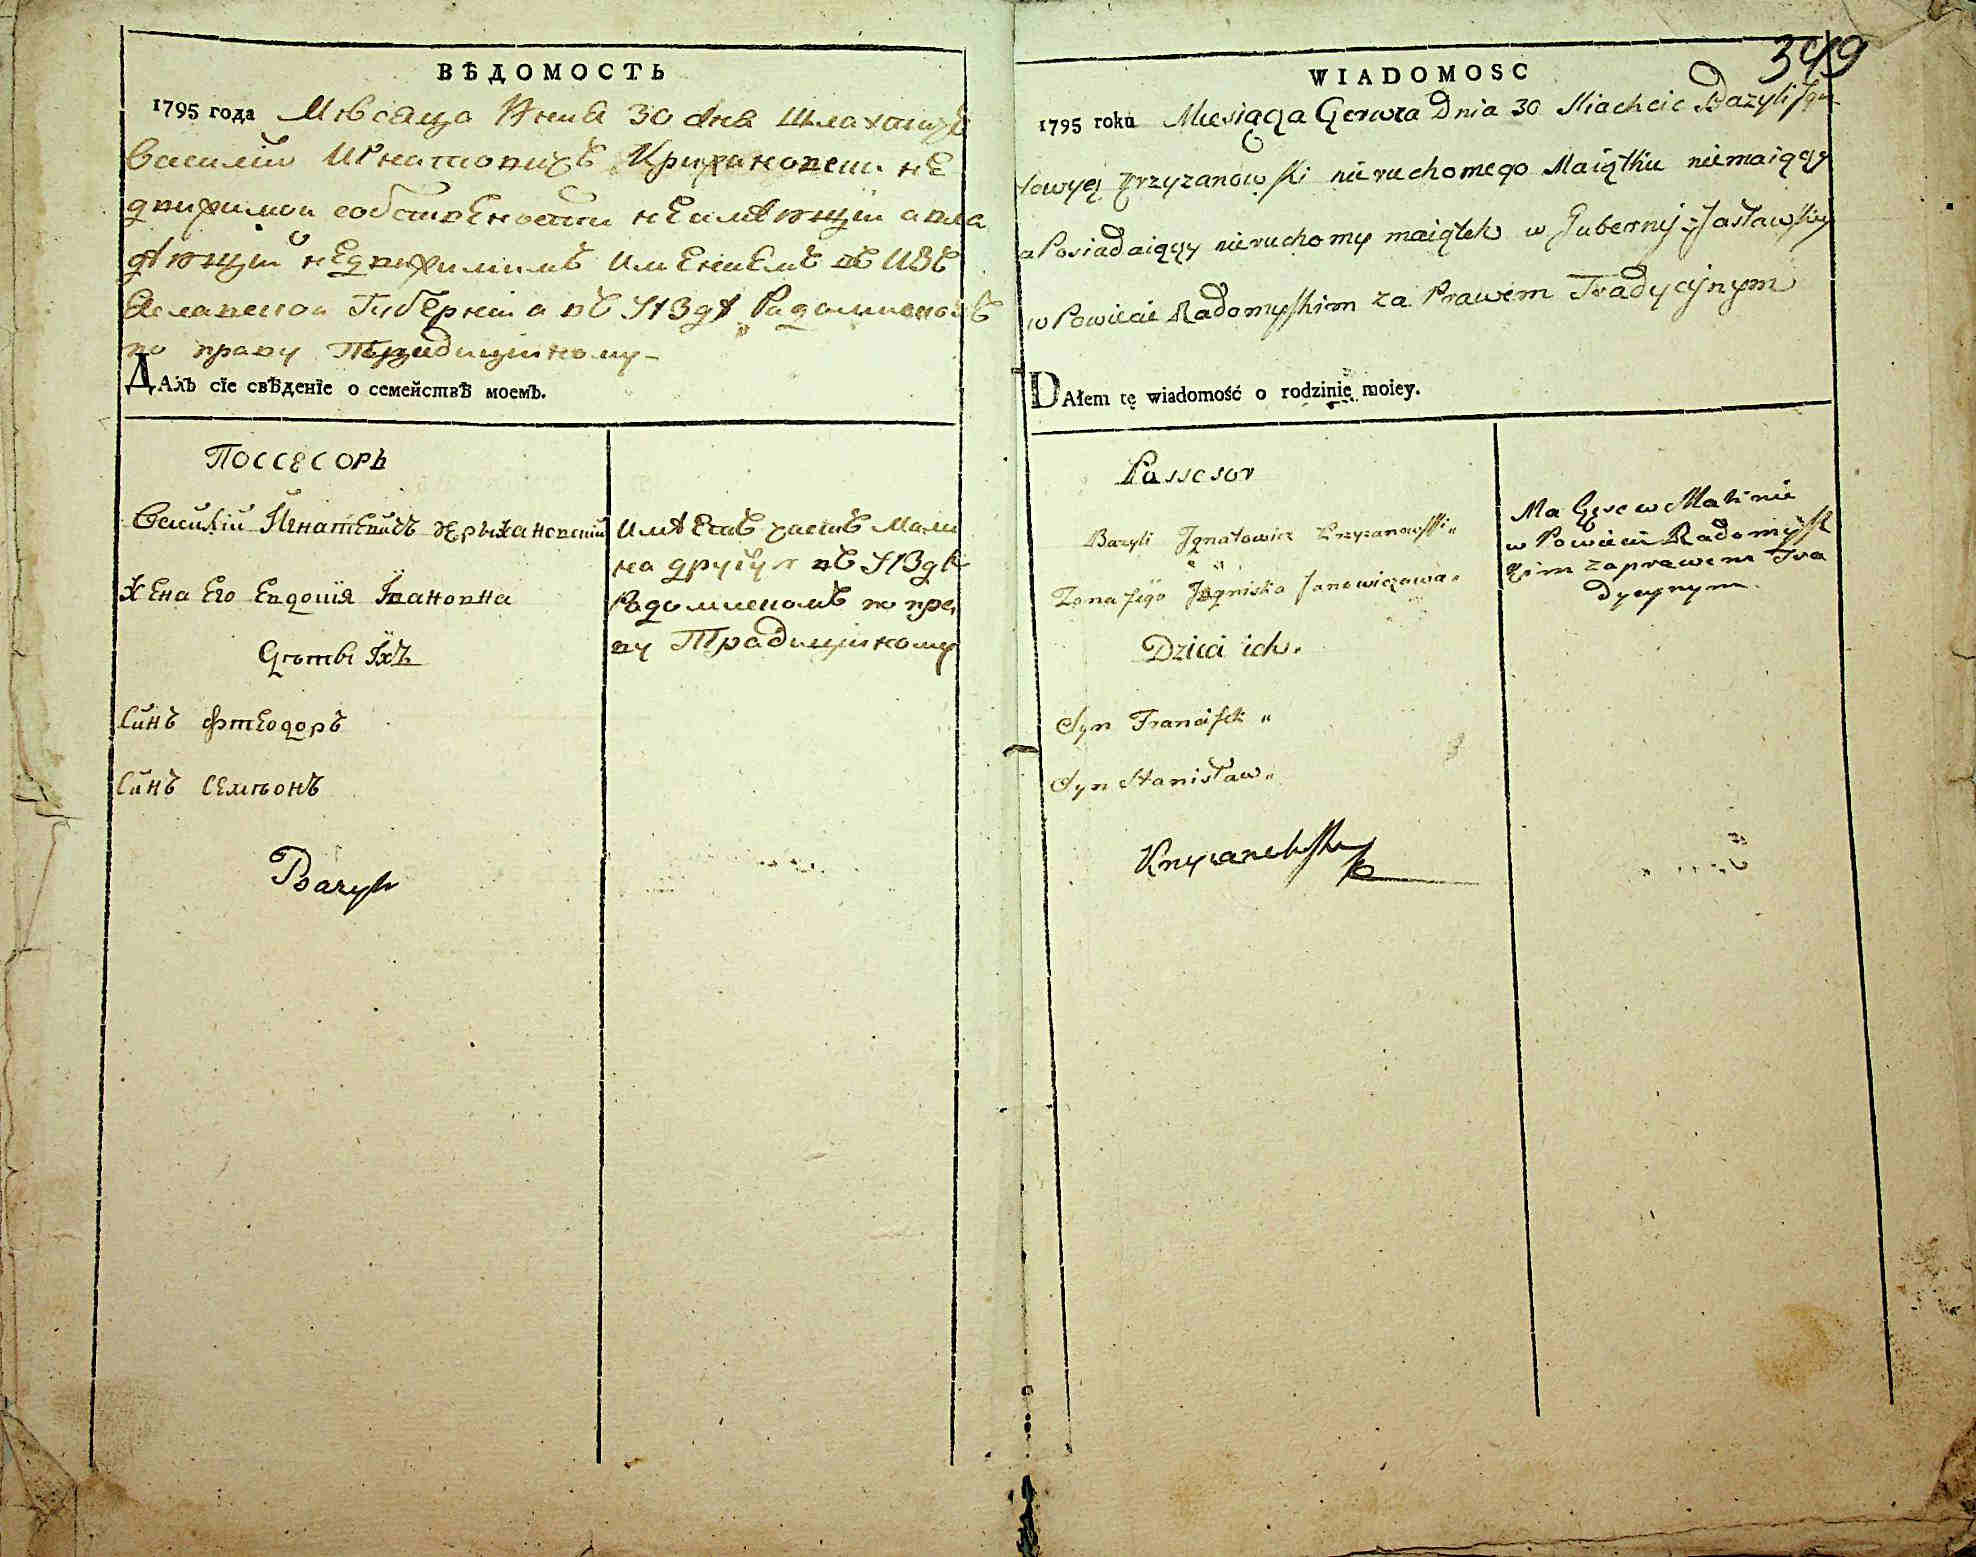 ВѢДОМОСТЬ
1795 года Мѣсаца Июня 30 дня Шляхтичъ
Василий Игнатовичъ Крижановски не
движимои собственности неимѣющии а вла
дѣющий недвижимимъ имениемъ въ Изъ
Яславскои Губернии а въ Уѣздѣ Радомисконъ
по праву Традицийному
ДАлъ сїе свѣденїе о семействѣ моемъ.
Поссесоръ
Василий Игнатевичъ Крыжановский
Жена Его Евдошїя Ивановна
Дѣтви Ихъ
Синъ Фтеодоръ
Синъ Семѣонъ
Bazyli
имѣетъ часть Мали
на другую въ Уѣздѣ
Радомискомъ по пра
ву Традицийному
349
WIADOMOSC
1795 roku Miesiąca Czerwca Dnia 30 Sliachcic Bazyli Jgna
towycz Krzyzanowski nieruchomego Maiątku niemaiący
a Posiadaiący nieruchomy maiątek w Gubernij Jzasławskiey
w Powiecie Radomyskim za Prawem Tradycyjnym
DAłem tę wiadomość o rodzinie moiey.
Possesor
Bazyli Jgnatowicz Krzyzanowski
Zona Jego Jagniska Janowiczowa
Dzieci ich.
Syn Francisek
Syn Stanisław
Krzyzanowski
Ma Częsc w Malinie
w Powiecie Radomysk
kim za prawem Tra
dycynym